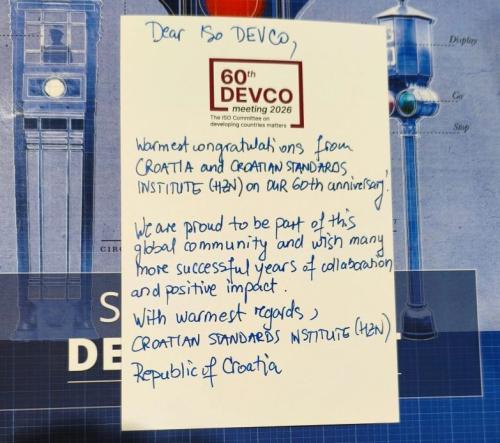 Dear ISO DEVCO,
60th
DEVCO
meeting 2026
The ISO Committee on
developing countries matters
Warmest congratulations from
CROATIA and CROATIAN STANDARDS
INSTITUTE (HZN) on OUR 60th anniversary!
We are proud to be part of this
global community and wish many
more successful years of collaboration
and positive impact.
With warmest regards,
CROATIAN STANDARDS INSTITUTE (HZN)
Republic of Croatia
Display
Go
Stop
CIRC
S
DE
T